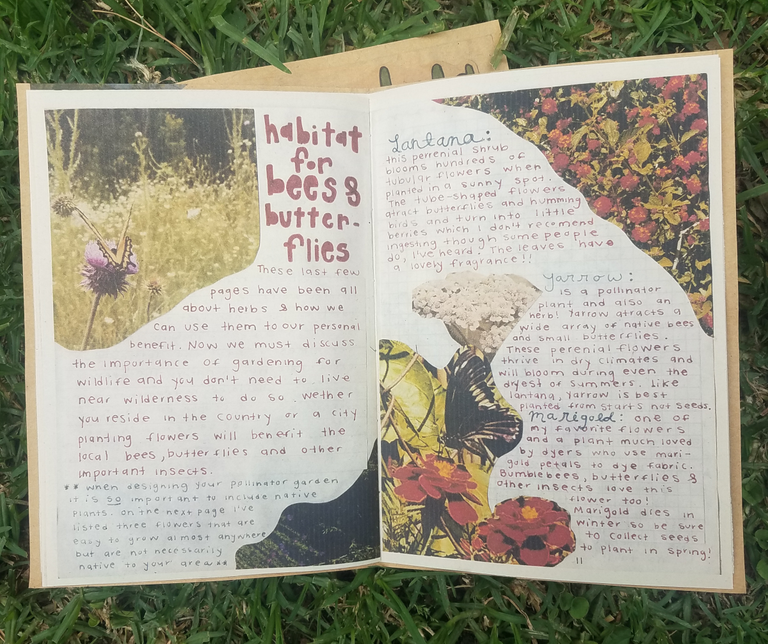 habitat
for
bees &
butter-
flies
These last few
pages have been all
about herbs & how we
can use them to our personal
benefit. Now we must discuss
the importance of gardening for
wildlife and you don't need to live
near wilderness to do so. Wether
you reside in the country or a city
planting flowers will benefit the
local bees, butterflies and other
important insects.
** when designing your pollinator garden
it is so important to include native
plants. on the next page I've
listed three flowers that are
easy to grow almost anywhere
but are not necessarily
native to your area**
Lantana:
this perenial shrub
blooms hundreds of
tubular flowers when
planted in a sunny spot.
The tube-shaped flowers
atract butterflies and humming
birds and turn into little
berries which I don't recomend
ingesting though some people
do, I've heard. The leaves have
a lovely fragrance!!
Yarrow:
is a pollinator
plant and also an
herb! Yarrow atracts a
wide array of native bees
and small butterflies.
These perenial flowers
thrive in dry climates and
will bloom during even the
dryest of summers. Like
lantana, yarrow is best
planted from starts not seeds.
Marigold: one of
my favorite flowers
and a plant much loved
by dyers who use mari-
gold petals to dye fabric.
Bumblebees, butterflies &
other insects love this
flower too!
Marigold dies in
winter so be sure
to collect seeds
to plant in spring!
11